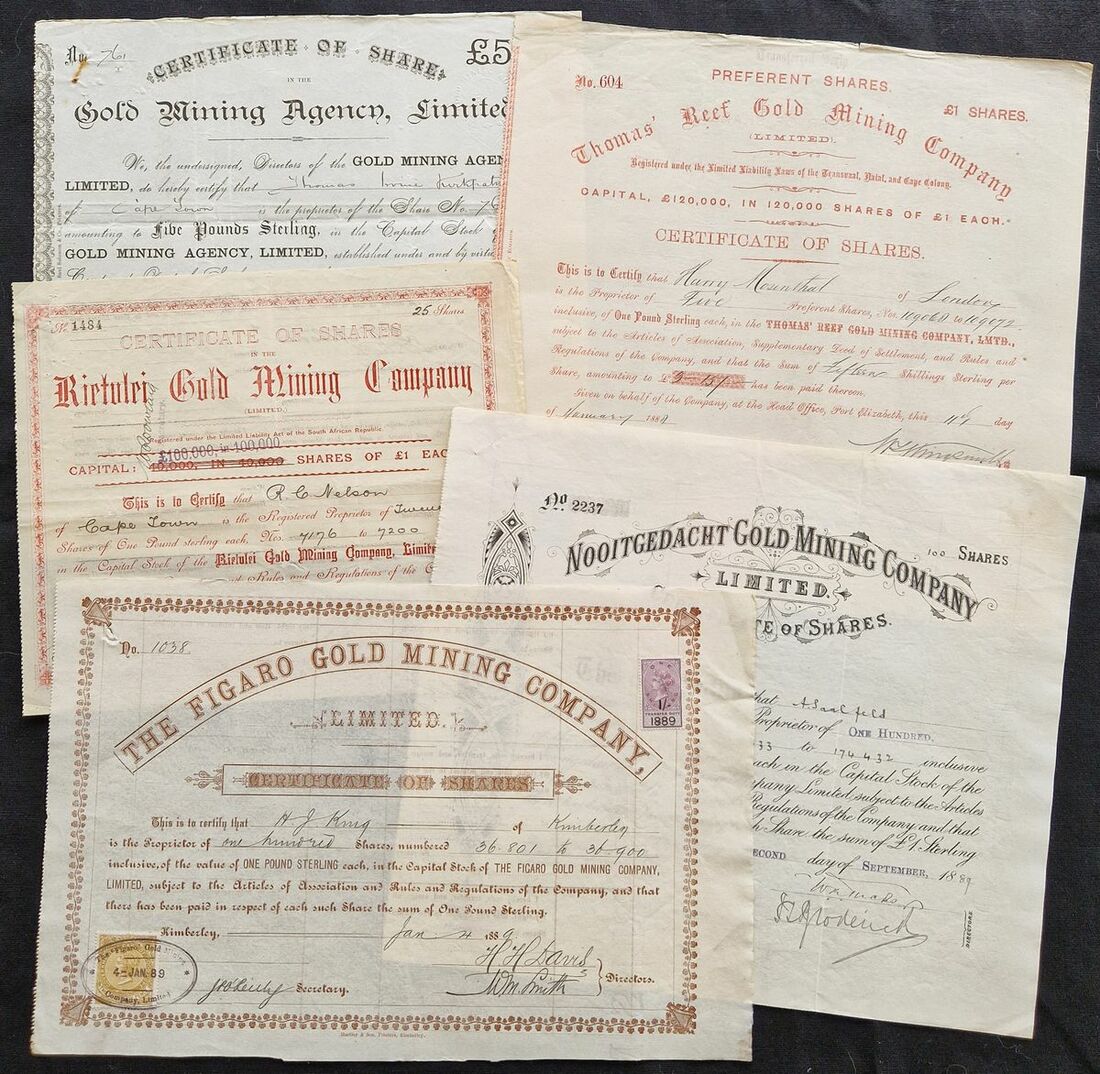 No. 761
CERTIFICATE OF SHARE
£5
IN THE
Gold Mining Agency, Limited
We, the undersigned, Directors of the GOLD MINING AGEN
LIMITED, do hereby certify that Thomas Irvine Kirkpat
of Cape Town is the proprietor of the Share No. 76
amounting to Five Pounds Sterling, in the Capital Stock o
GOLD MINING AGENCY, LIMITED, established under and by virtu
No. 604
PREFERENT SHARES.
£1 SHARES.
Thomas' Reef Gold Mining Company
(LIMITED).
Registered under the Limited Liability Laws of the Transvaal, Natal, and Cape Colony.
CAPITAL, £120,000, IN 120,000 SHARES OF £1 EACH.
CERTIFICATE OF SHARES.
This is to Certify that Harry Mosenthal of London
is the Proprietor of Five Preferent Shares, Nos. 109068 to 109072
inclusive, of One Pound Sterling each, in the THOMAS' REEF GOLD MINING COMPANY, LMTD.,
subject to the Articles of Association, Supplementary Deed of Settlement, and Rules and
Regulations of the Company, and that the Sum of Fifteen Shillings Sterling per
Share, amounting to £3-15/- has been paid thereon.
Given on behalf of the Company, at the Head Office, Port Elizabeth, this 11th day
of January 1889
No. 1484
25 Shares
CERTIFICATE OF SHARES
IN THE
Rietvlei Gold Mining Company
(LIMITED.)
Registered under the Limited Liability Act of the South African Republic
£100,000, in 100,000
CAPITAL: 40,000, IN 40,000 SHARES OF £1 EAC
This is to Certify that R. C. Nelson
of Cape Town is the Registered Proprietor of Twen
Shares of One Pound sterling each, Nos 7176 to 7200
in the Capital Stock of the Rietvlei Gold Mining Company, Limite
Rules and Regulations of the C
No 2237
100 SHARES
NOOITGEDACHT GOLD MINING COMPANY
LIMITED.
TE OF SHARES.
hat A Saalfeld
Proprietor of ONE HUNDRED.
33 to 174432 inclusive
ach in the Capital Stock of the
pany Limited subject to the Articles
Regulations of the Company and that
h Share the sum of £1. Sterling
ECOND day of SEPTEMBER, 1889
DIRECTORS
No. 1038
THE FIGARO GOLD MINING COMPANY,
LIMITED.
1/-
1889
CERTIFICATE OF SHARES
This is to certify that H J King of Kimberley
is the Proprietor of one hundred Shares, numbered 36.801 to 36.900
inclusive, of the value of ONE POUND STERLING each, in the Capital Stock of THE FIGARO GOLD MINING COMPANY,
LIMITED, subject to the Articles of Association and Rules and Regulations of the Company, and that
there has been paid in respect of each such Share the sum of One Pound Sterling.
Kimberley, Jan 4 1889
The "Figaro" Gold Mining
4-JAN.89
Company, Limited
Secretary.
H H Davis
Wm Smith
Directors.